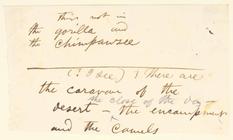 this not in
the gorilla and
the Chimpansee
(! I see) & There are
the caravan of the
the close of the day
desert — the encampment
and the Camels